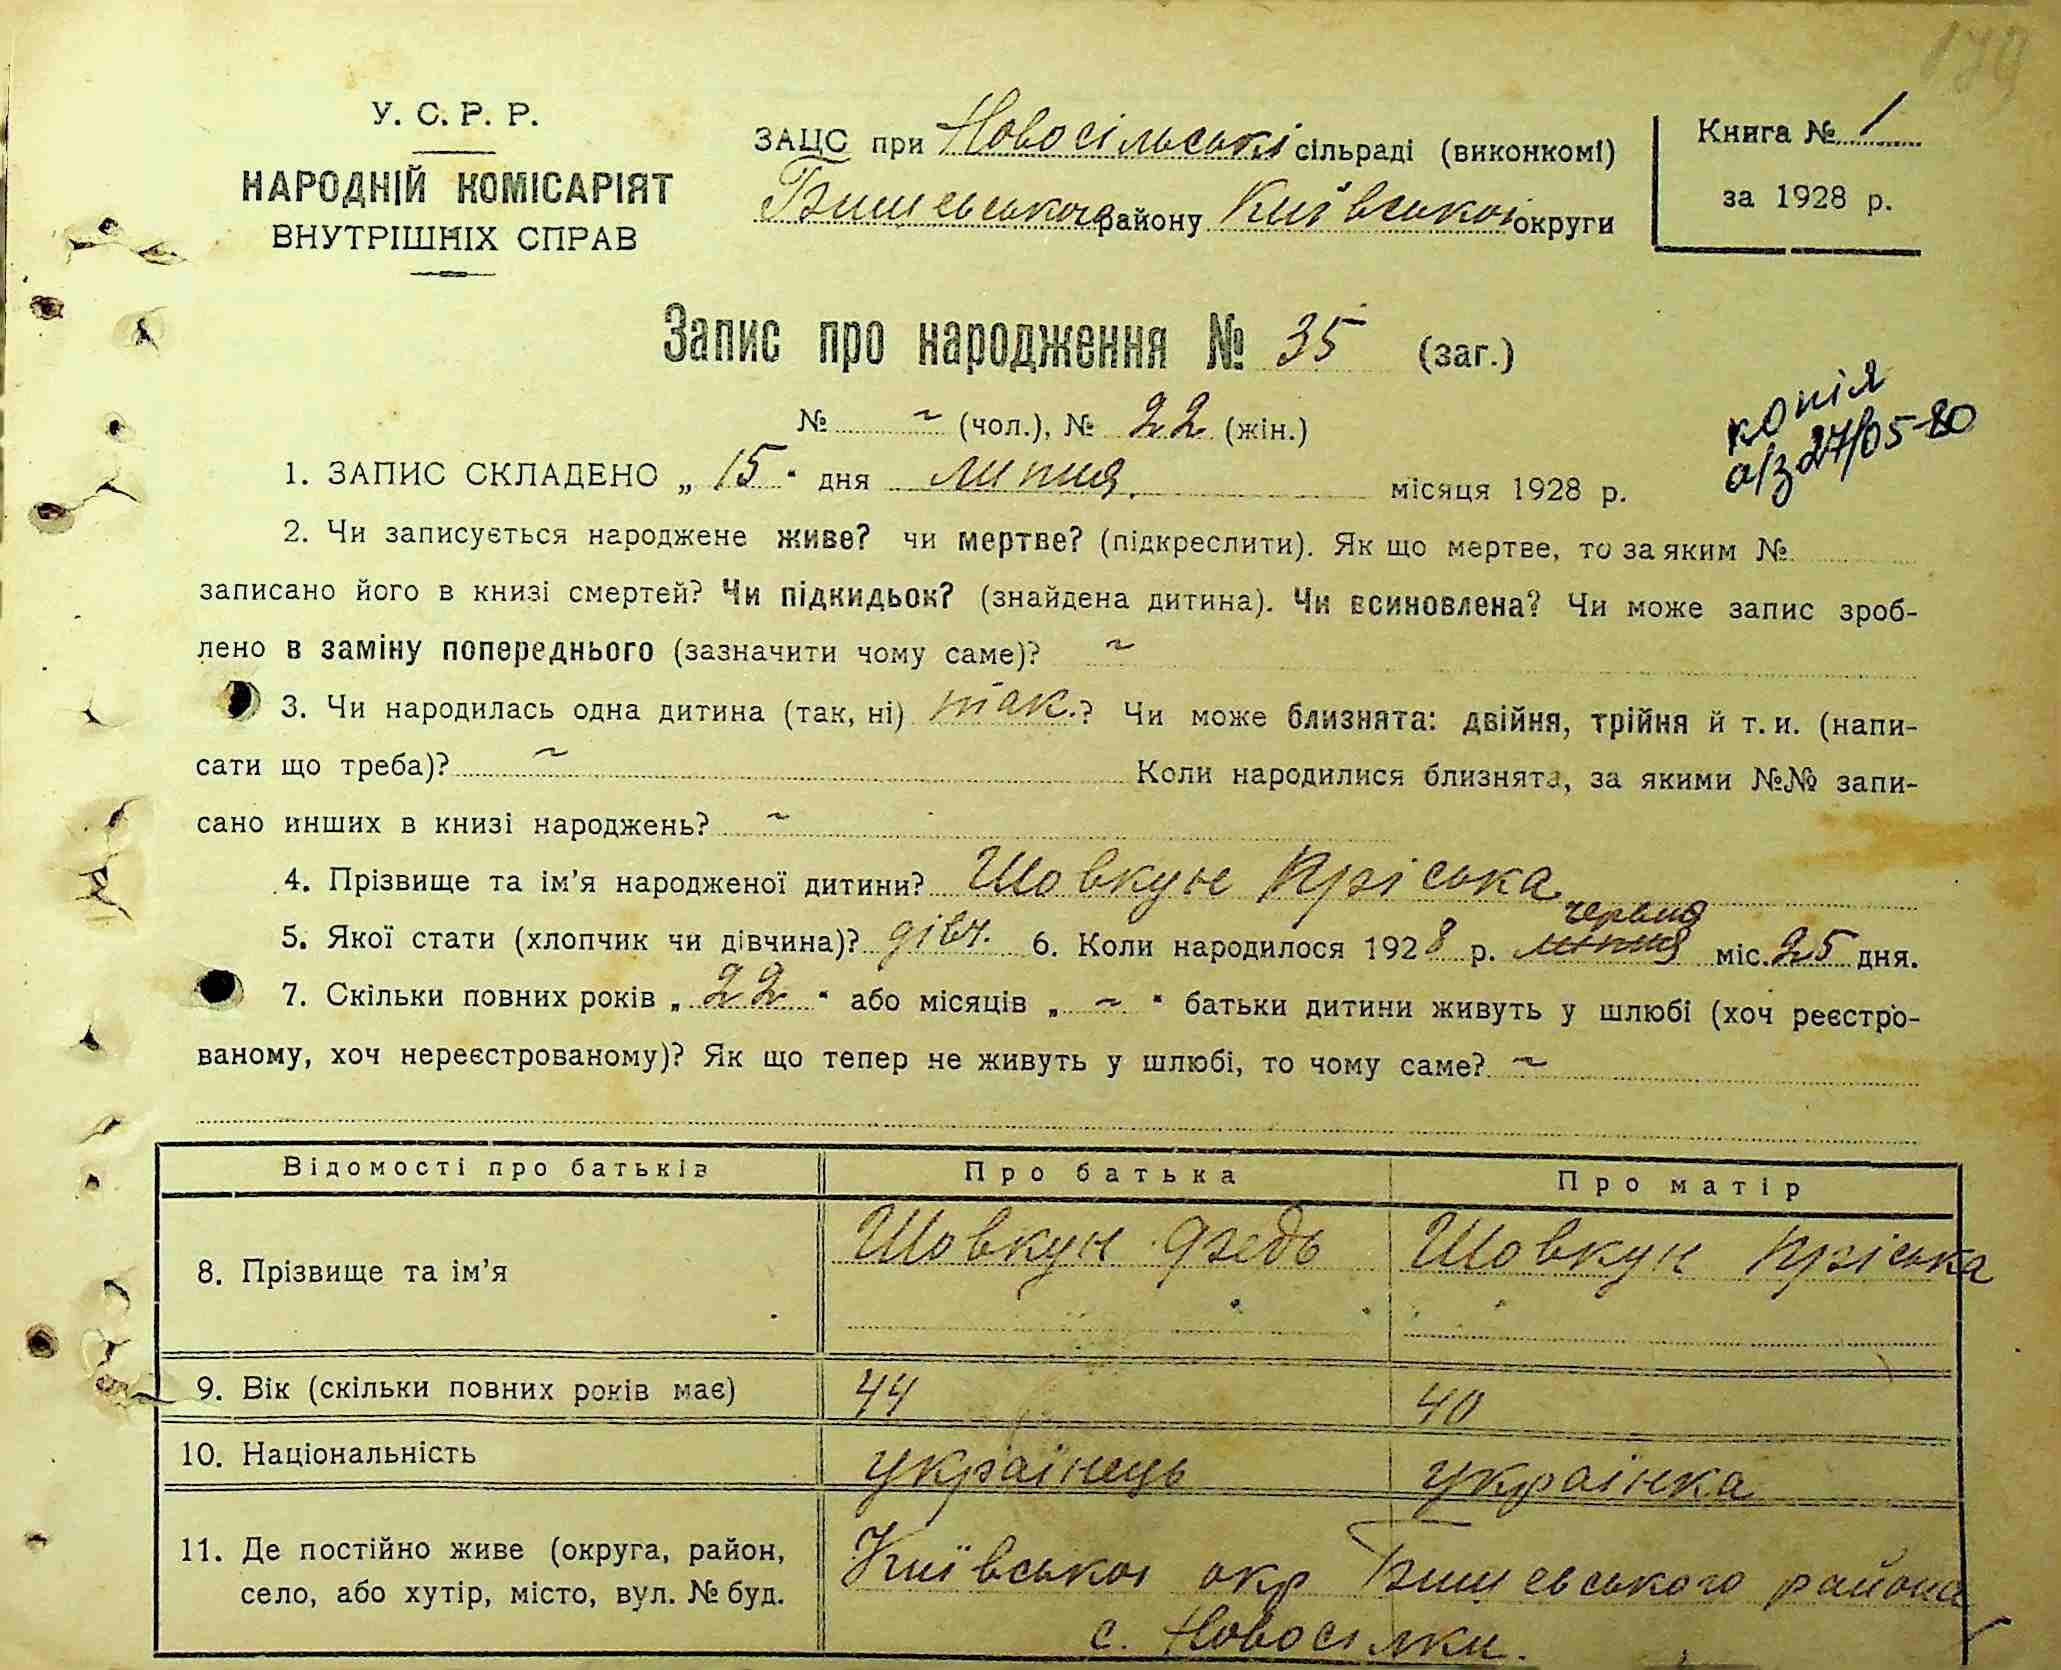 179
У. С. Р. Р.
НАРОДНІЙ КОМІСАРІЯТ
ВНУТРІШНІХ СПРАВ
ЗАЦС при Новосільські сільраді (виконкомі)
Бишевського району Київської округи
Книга № 1
за 1928 р.
Запис про народження № 35 (заг.)
№ ~ (чол.), № 22 (жін.)
копія
а/з 27/05-80
1. ЗАПИС СКЛАДЕНО „ 15 “ дня липня. місяця 1928 р.
2. Чи записується народжене живе? чи мертве? (підкреслити). Як що мертве, то за яким №
записано його в книзі смертей? Чи підкидьок? (знайдена дитина). Чи всиновлена? Чи може запис зроб-
лено в заміну попереднього (зазначити чому саме)? ~
3. Чи народилась одна дитина (так, ні) так.? Чи може близнята: двійня, трійня й т. и. (напи-
сати що треба)? ~ Коли народилися близнята, за якими №№ запи-
сано инших в книзі народжень? ~
4. Прізвище та ім'я народженої дитини? Шовкун Пріська
5. Якої стати (хлопчик чи дівчина)? дівч. 6. Коли народилося 1928 р. липня червня міс. 25 дня.
7. Скільки повних років „ 22 “ або місяців „ ~ “ батьки дитини живуть у шлюбі (хоч реєстро-
ваному, хоч нереєстрованому)? Як що тепер не живуть у шлюбі, то чому саме? ~
Відомості про батьків Про батька Про матір
8. Прізвище та ім'я Шовкун Федь Шовкун Пріська
9. Вік (скільки повних років має) 44 40
10. Національність українець українка
11. Де постійно живе (округа, район, Київської окр Бишевського района
село, або хутір, місто, вул. № буд. с. Новосілки.